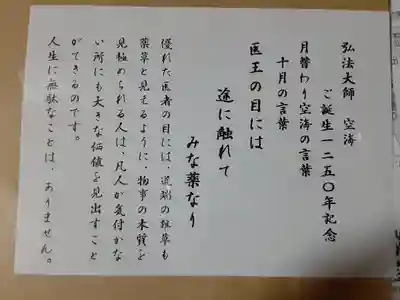 弘法大師 空海
ご誕生一二五〇年記念
月替わり空海の言葉
十月の言葉
医王の目には
途に触れて
みな薬なり
優れた医者の目には、道端の雑草も
薬草と見えるように、物事の本質を
見極められる人は、凡人が気付かな
い所にも大きな価値を見出すこと
ができるのです。
人生に無駄なことは、ありません。